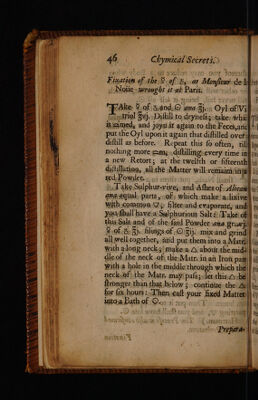 46 Chymical Secrets.
Fixation of the ☿ of ♄, as Monsieur de la
Noüe wrought it at Paris.
TAke ☿ of ♄ and ☉ ana ℥j. Oyl of Vi-
triol ℥vj. Distill to dryness; take what
is ramed, and joyn it again to the Feces, and
put the Oyl upon it again that distilled over;
distill as before. Repeat this so often, till
nothing more distilling every time in
a new Retort; at the twelfth or fifteenth
distillation, all the Matter will remain in a
red Powder.
Take Sulphur-vive, and Ashes of
ana equal parts, of which make a lixive
with common filter and evaporate, and
you shall have a Sulphurious Salt: Take of
this Salt and of the said Powder ana
☿ of filings of ☉ ℥ij. mix and grind
all well together, and put them into a Matr.
with a long neck; make a △ about the mid-
dle of the neck of the Matr. in an Iron pan
with a hole in the middle through which the
neck of the Matr. may pass; let this △ be
stronger than that below; continue the △
for six hours: Then cast your fixed Matter
into a Bath of ☉.
Prepara-